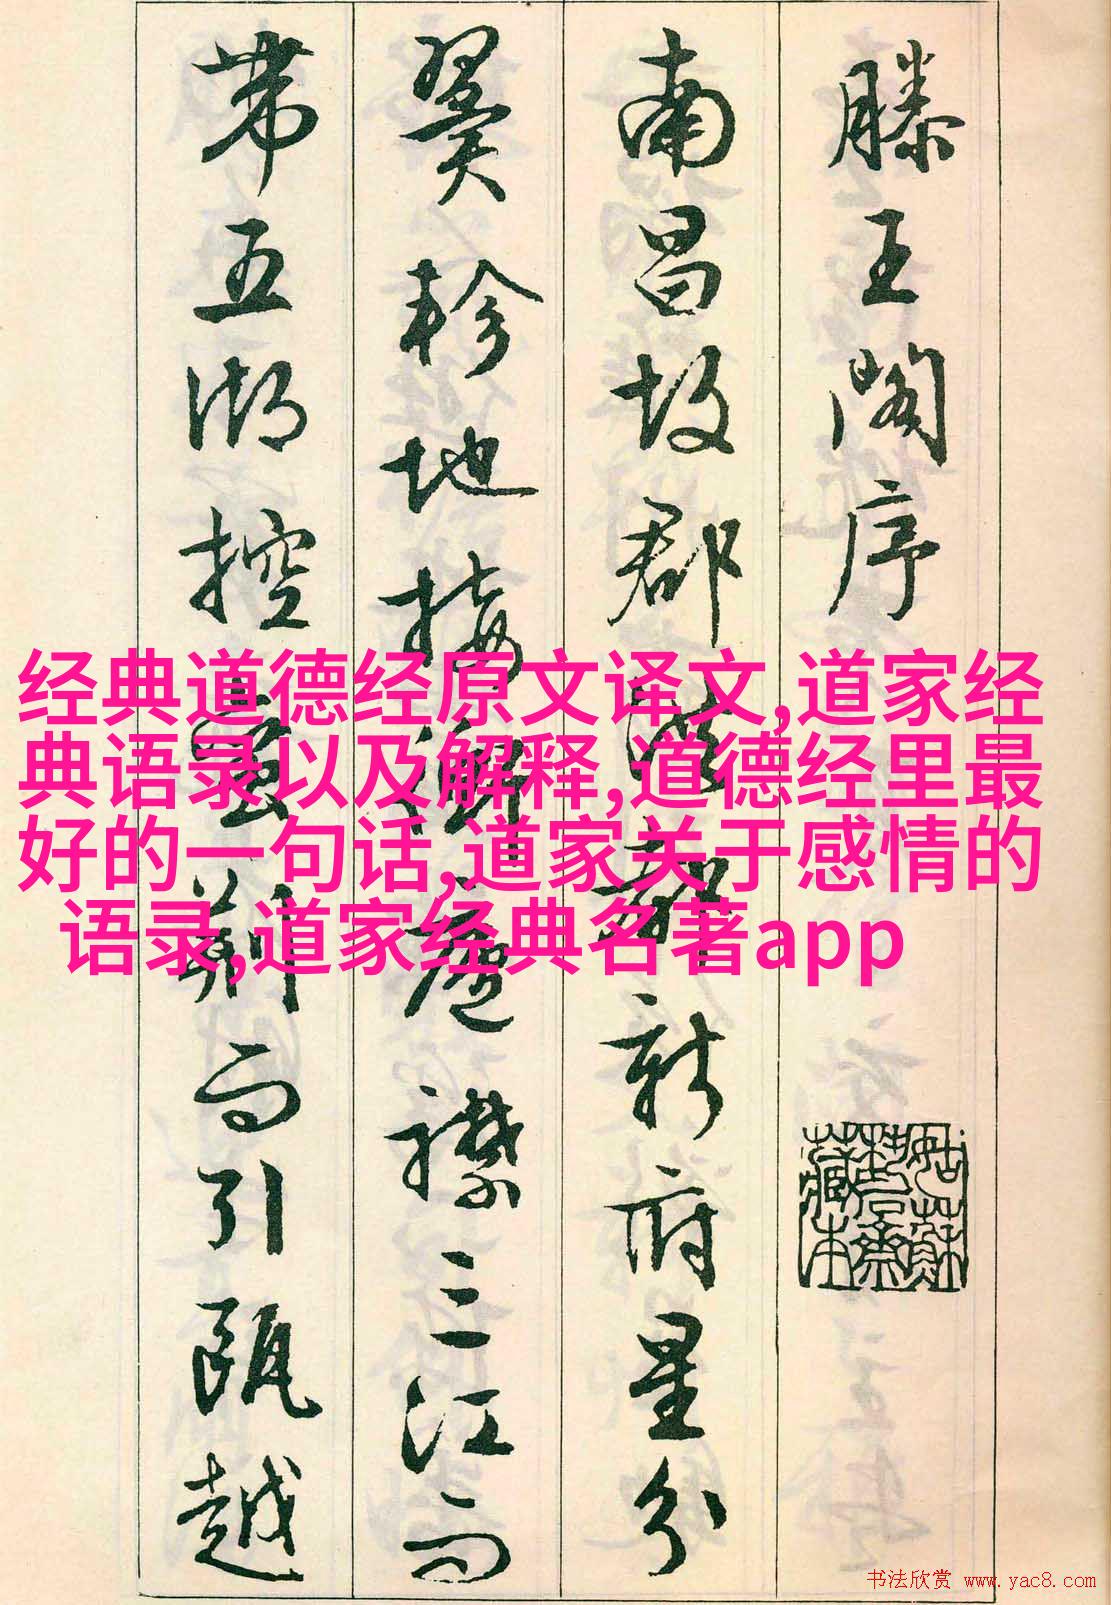 滕王閣序
南昌故郡洪都新府星分
翼軫地接衡廬襟三江而
帶五湖控蠻荊而引甌越
经典道德经原文译文,道家经
典语录以及解释,道德经里最
好的一句话,道家关于感情的
语录,道家经典名著app
书法欣赏 www.yac8.com